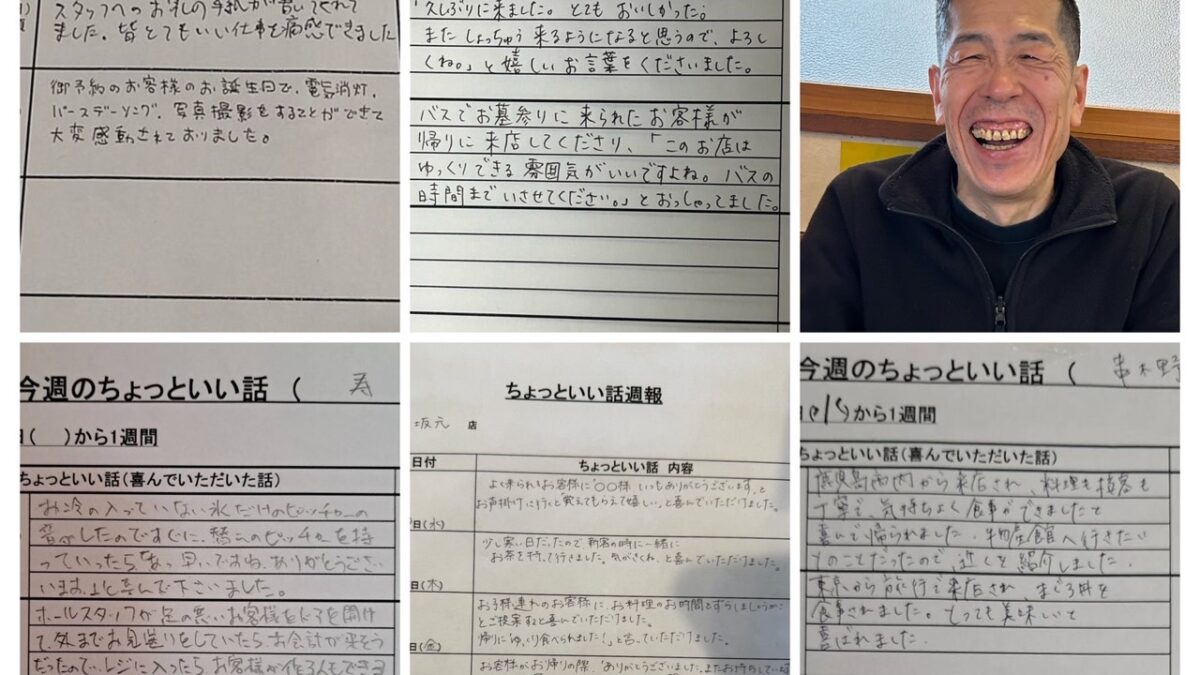 スタッフへのお礼の手紙が書いてくれて
ました。皆とてもいい仕事を痛感できました
御予約のお客様のお誕生日で、電気消灯、
バースデーソング、写真撮影をすることができて
大変感動されておりました。
「久しぶりに来ました。とてもおいしかった。
またしょっちゅう来るようになると思うので、よろし
くね。」と嬉しいお言葉をくださいました。
バスでお墓参りに来られたお客様が
帰りに来店してくださり、「このお店は
ゆっくりできる雰囲気がいいですよね。バスの
時間までいさせてください。」とおっしゃってました。
今週のちょっといい話（ 寿
日（ ）から1週間
ちょっといい話（喜んでいただいた話）
お冷の入っていない氷だけのピッチャーの
音がしたのですぐに、替えのピッチャーを持
っていったら「早いですね、ありがとうござい
います。」と喜んで下さいました。
ホールスタッフが足の悪いお客様をドアを開け
て、外までお見送りをしていたら、お会計が来そう
だったので、レジに入ったら、お客様が
ちょっといい話週報
坂元 店
日付 ちょっといい話 内容
よく来られるお客様に"〇〇様 いつもありがとうございます。"と
お声掛けに行くと覚えてもらえて嬉しい。と喜んでいただけました。
日(水)
少し寒い日だったので新客の時に一緒に
お茶を持って行きました。気がきくね、と喜んでいただけました。
日(木)
お子様連れのお客様に、お料理のお時間をずらしましょうか？
とご提案すると喜んでいただけました。
帰りにゆっくり食べられました！」と言っていただけました。
日(金)
お客様がお帰りの際、「ありがとうございました。またお待ちしていま
今週のちょっといい話（ 串木野
日( )から1週間
ちょっといい話（喜んでいただいた話）
鹿児島市内から来店され、料理も接客も
丁寧で、気持ちよく食事ができましたと
喜んで帰られました。物産館へ行きたい
とのことだったので、近くを紹介しました。
東京から旅行で来店され、まぐろ丼を
食事されました。とっても美味しいと
喜ばれました。